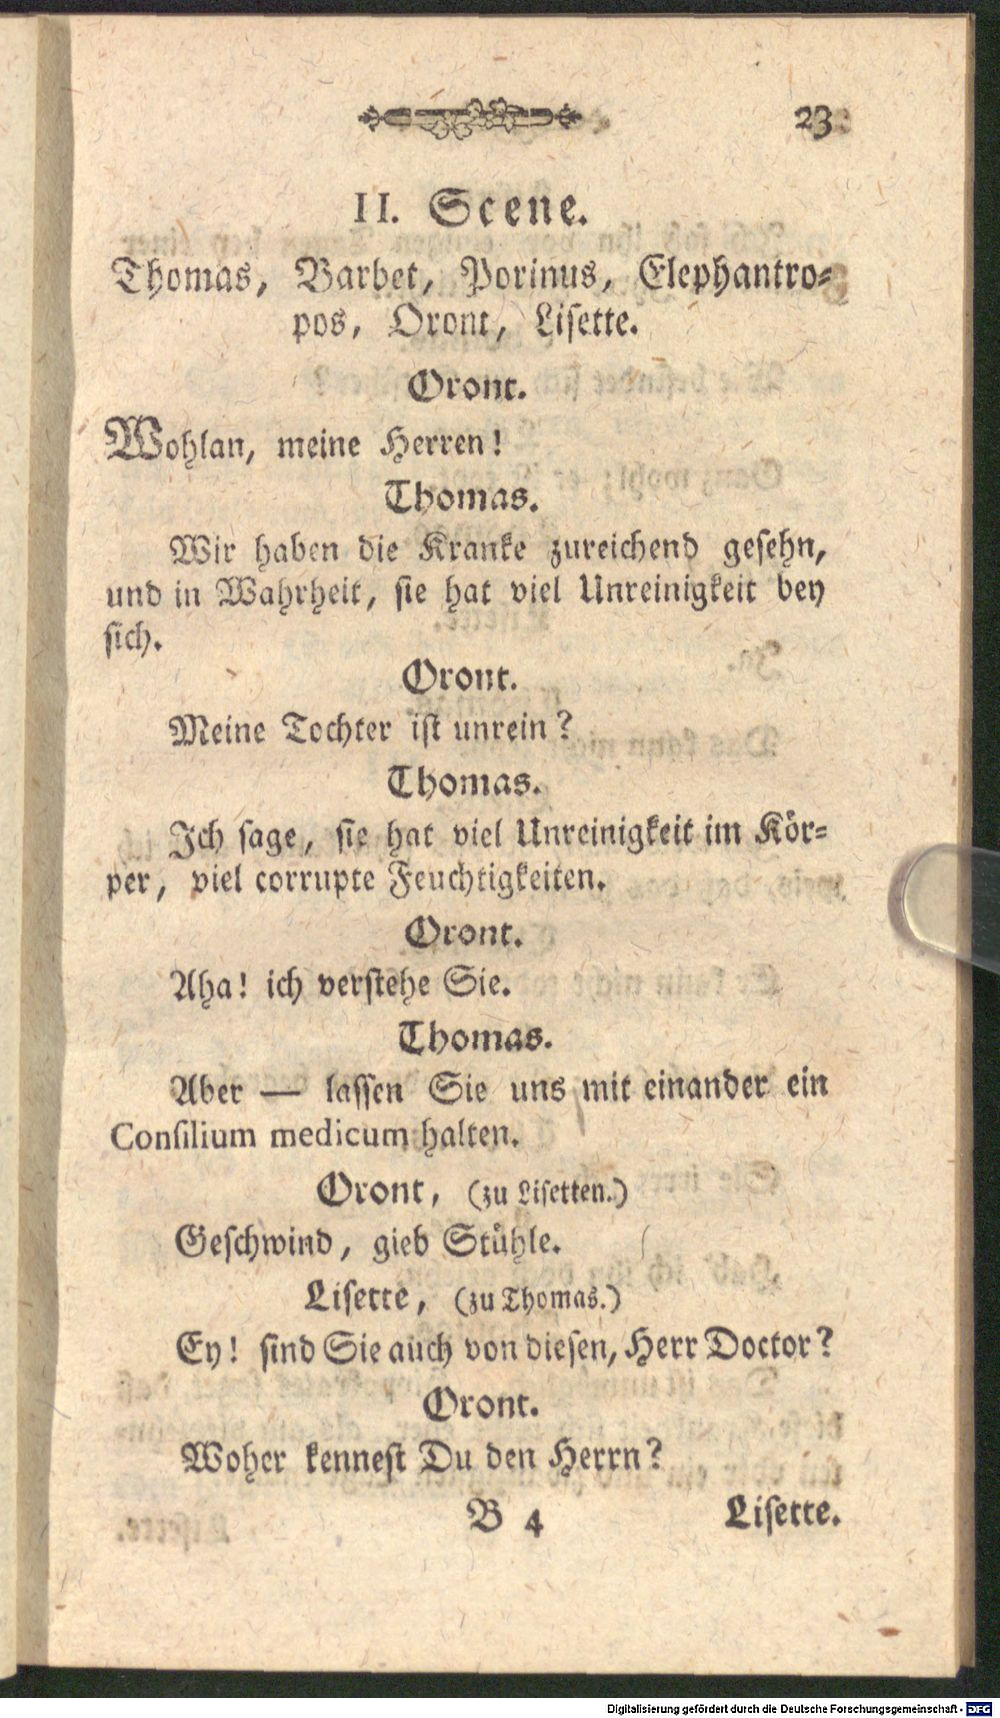 23
II. Scene.
Thomas, Barbet, Porinus, Elephantro-
pos, Oront, Lisette.
Oront.
Wohlan, meine Herren!
Thomas.
Wir haben die Kranke zureichend gesehn,
und in Wahrheit, sie hat viel Unreinigkeit bey
sich.
Oront.
Meine Tochter ist unrein?
Thomas.
Ich sage, sie hat viel Unreinigkeit im Kör-
per, viel corrupte Feuchtigkeiten.
Oront.
Aha! ich verstehe Sie.
Thomas.
Aber — lassen Sie uns mit einander ein
Consilium medicum halten.
Oront, (zu Lisetten.)
Geschwind, gieb Stühle.
Lisette, (zu Thomas.)
Ey! sind Sie auch von diesen, Herr Doctor?
Oront.
Woher kennest Du den Herrn?
B 4 Lisette.
Digitalisierung gefördert durch die Deutsche Forschungsgemeinschaft - DFG